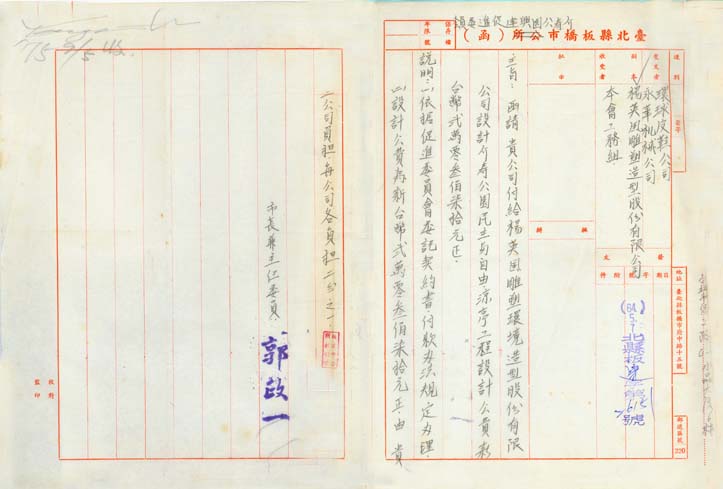 介壽公園興建促進委員
臺北縣板橋市公所（函）
保存
年限
檔號
速別
受文者
副本
收受者
環球皮鞋公司
永華機械公司
楊英風雕塑造型股份有限公司
本會工務組
批示
擬辦
發文
日期
字號
附件
64.5.7
北縣板建
號
地址 臺北縣板橋市府中路十五號
郵遞區號
220
主旨：函請 貴公司付給楊英風雕塑環境造型股份有限
公司設計介壽公園民主與自由涼亭工程設計公費新
台幣弍萬零叁佰柒拾元正。
說明：一、依据促進委員會委託契約書付款办法規定办理。
二、設計公費為新台幣弍萬零叁佰柒拾元正，由 貴
二公司負担每公司各負担二分之一。
市長兼主任委員 郭政一
校對
監印
75 5/5 收